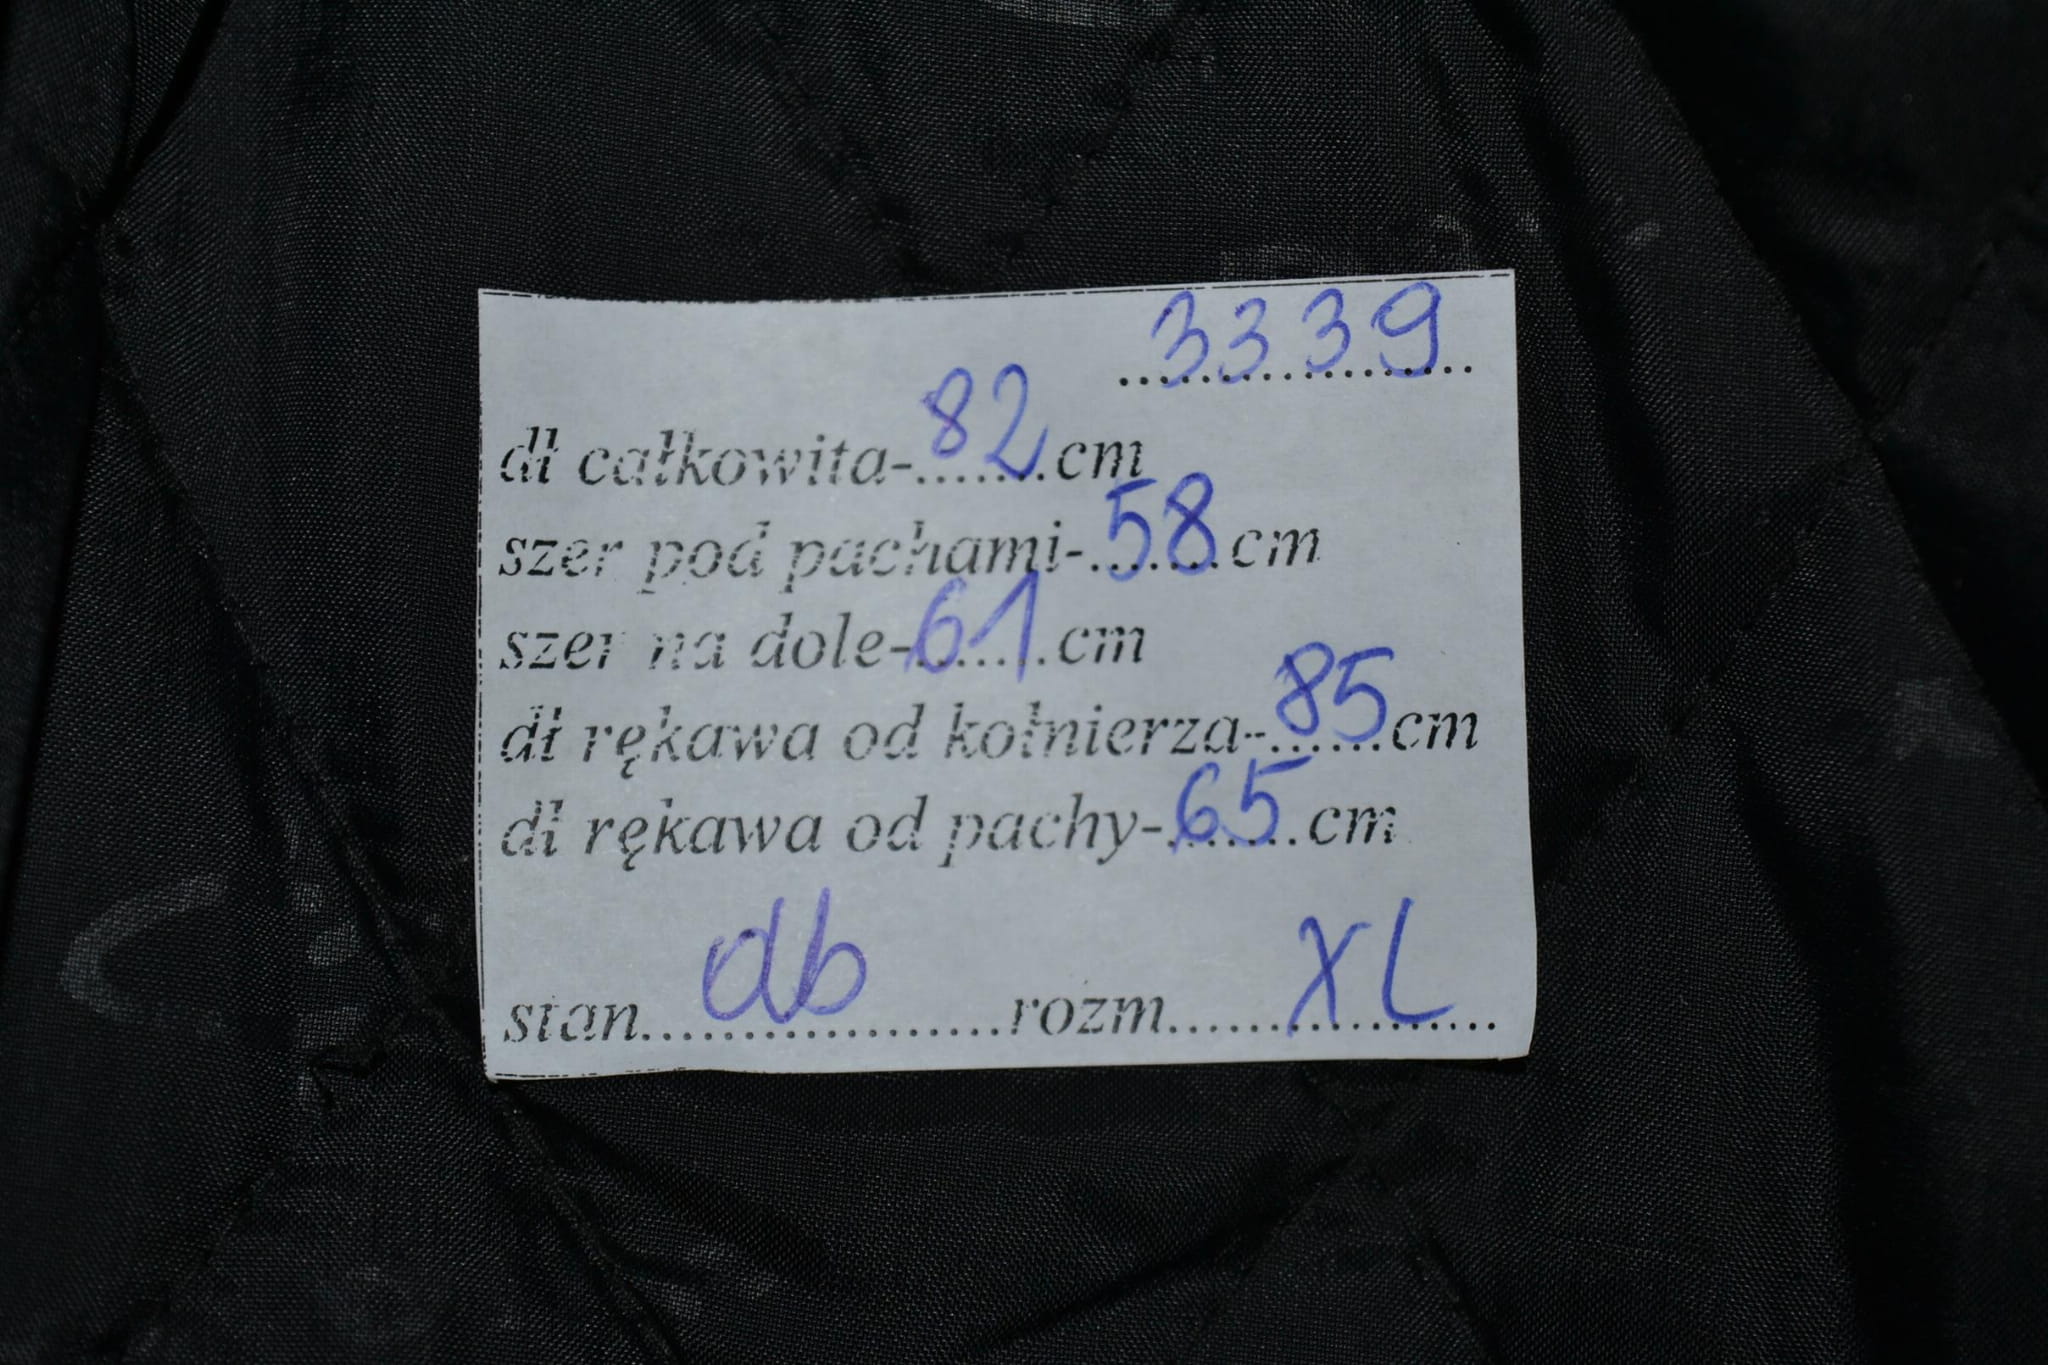 3339
dł całkowita-82cm
szer pod pachami-58cm
szer na dole-61cm
dł rękawa od kołnierza-85cm
dł rękawa od pachy-65cm
stan db rozm XL